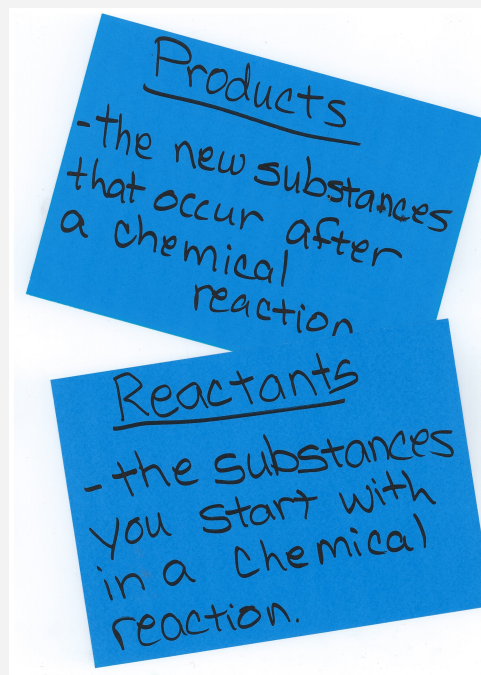 Products
-the new substances
that occur after
a chemical
reaction
Reactants
-the substances
you start with
in a chemical
reaction.